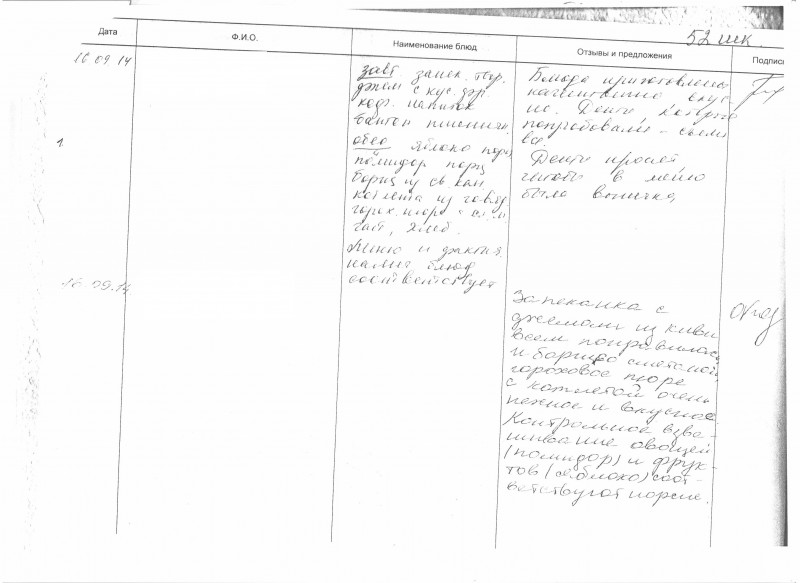 52 шк.
Дата Ф.И.О. Наименование блюд Отзывы и предложения Подпись
16 09.14
завт. запек. твор.
джем с кус.
напиток
батон пшенич.
1
обед яблоко порц.
помидор порц
борщ из св. кап.
котлета из говяд
горох. пюре
чай, хлеб.
Меню и фактич.
блюд
соответствует
Блюда приготовлены
качественно вкус
но. Дети, которые
попробовали – съели
все.
Дети просят
чтобы в меню
была выпечка,
16 09.14
Запеканка с
джемом из киви
всем понравилась
и борщ со сметаной
гороховое пюре
с котлетой очень
нежное и вкусное.
Контрольное взве-
шивание овощей
(помидор) и фрук-
тов (яблоко) соот-
ветствуют норме.